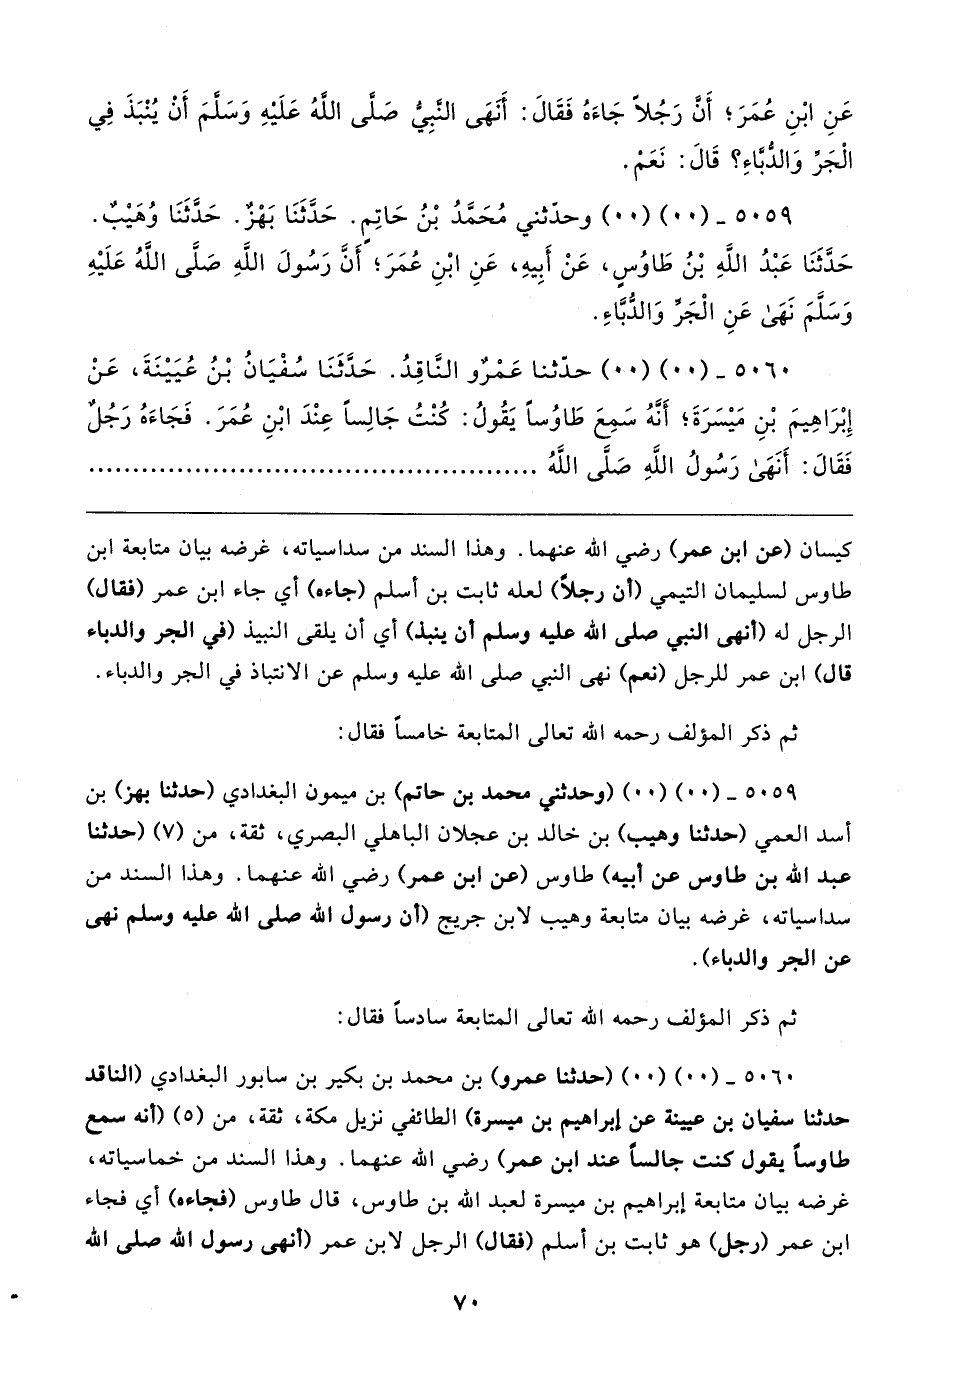 عَنِ ابْنِ عُمَرَ؛ أَنَّ رَجُلاً جَاءَهُ فَقَالَ: أَنَهَى النَّبِيُّ صَلَّى اللَّهُ عَلَيْهِ وَسَلَّمَ أَنْ يُنْبَذَ فِي
الْجَرِّ وَالدُّبَّاءِ؟ قَالَ: نَعَمْ.
٥٠٥٩ ـ (٠٠) (٠٠) وحدّثني مُحَمَّدُ بْنُ حَاتِمٍ. حَدَّثَنَا بَهْزٌ. حَدَّثَنَا وُهَيْبٌ.
حَدَّثَنَا عَبْدُ اللَّهِ بْنُ طَاوُسٍ، عَنْ أَبِيهِ، عَنِ ابْنِ عُمَرَ؛ أَنَّ رَسُولَ اللَّهِ صَلَّى اللَّهُ عَلَيْهِ
وَسَلَّمَ نَهَىٰ عَنِ الْجَرِّ وَالدُّبَّاءِ.
٥٠٦٠ ـ (٠٠) (٠٠) حدّثنا عَمْرٌو النَّاقِدُ. حَدَّثَنَا سُفْيَانُ بْنُ عُيَيْنَةَ، عَنْ
إِبْرَاهِيمَ بْنِ مَيْسَرَةَ؛ أَنَّهُ سَمِعَ طَاوُساً يَقُولُ: كُنْتُ جَالِساً عِنْدَ ابْنِ عُمَرَ. فَجَاءَهُ رَجُلٌ
فَقَالَ: أَنَهَىٰ رَسُولُ اللَّهِ صَلَّى اللَّهُ ..................................................
كيسان (عن ابن عمر) رضي الله عنهما. وهذا السند من سداسياته، غرضه بيان متابعة ابن
طاوس لسليمان التيمي (أن رجلاً) لعله ثابت بن أسلم (جاءه) أي جاء ابن عمر (فقال)
الرجل له (أنهى النبي صلى الله عليه وسلم أن ينبذ) أي أن يلقى النبيذ (في الجر والدباء
قال) ابن عمر للرجل (نعم) نهى النبي صلى الله عليه وسلم عن الانتباذ في الجر والدباء.
ثم ذكر المؤلف رحمه الله تعالى المتابعة خامساً فقال:
٥٠٥٩ ـ (٠٠) (٠٠) (وحدثني محمد بن حاتم) بن ميمون البغدادي (حدثنا بهز) بن
أسد العمي (حدثنا وهيب) بن خالد بن عجلان الباهلي البصري، ثقة، من (٧) (حدثنا
عبد الله بن طاوس عن أبيه) طاوس (عن ابن عمر) رضي الله عنهما. وهذا السند من
سداسياته، غرضه بيان متابعة وهيب لابن جريج (أن رسول الله صلى الله عليه وسلم نهى
عن الجر والدباء).
ثم ذكر المؤلف رحمه الله تعالى المتابعة سادساً فقال:
٥٠٦٠ ـ (٠٠) (٠٠) (حدثنا عمرو) بن محمد بن بكير بن سابور البغدادي (الناقد
حدثنا سفيان بن عيينة عن إبراهيم بن ميسرة) الطائفي نزيل مكة، ثقة، من (٥) (أنه سمع
طاوساً يقول كنت جالساً عند ابن عمر) رضي الله عنهما. وهذا السند من خماسياته،
غرضه بيان متابعة إبراهيم بن ميسرة لعبد الله بن طاوس، قال طاوس (فجاءه) أي فجاء
ابن عمر (رجل) هو ثابت بن أسلم (فقال) الرجل لابن عمر (أنهى رسول الله صلى الله
٧٠